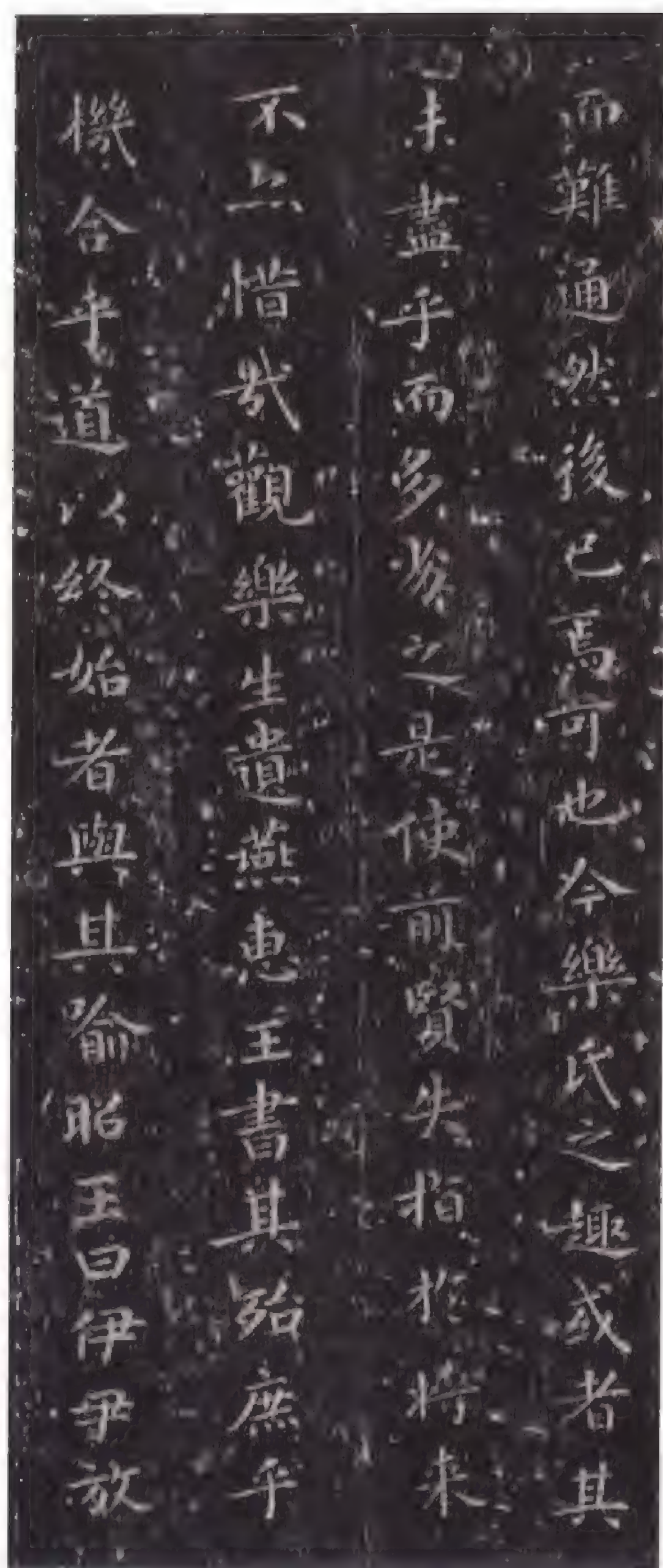 而難通然後已焉可也今樂氏之趣或者其
未盡乎而多劣之是使前賢失指於將来
不亦惜哉觀樂生遺燕惠王書其殆庶乎
機合乎道以終始者與其喻昭王曰伊尹放